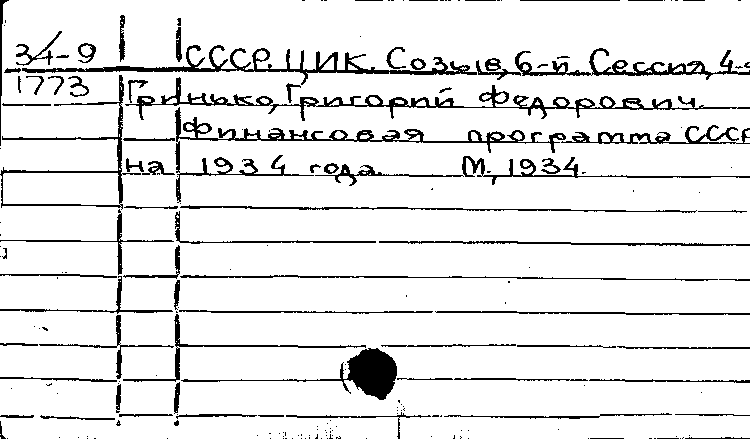 34-9 СССР. ЦИК. Созыв, 6-й. Сессия, 4-я
1773 Гринько, Григорий Федорович.
Финансовая программа СССР
на 1934 года. М., 1934.